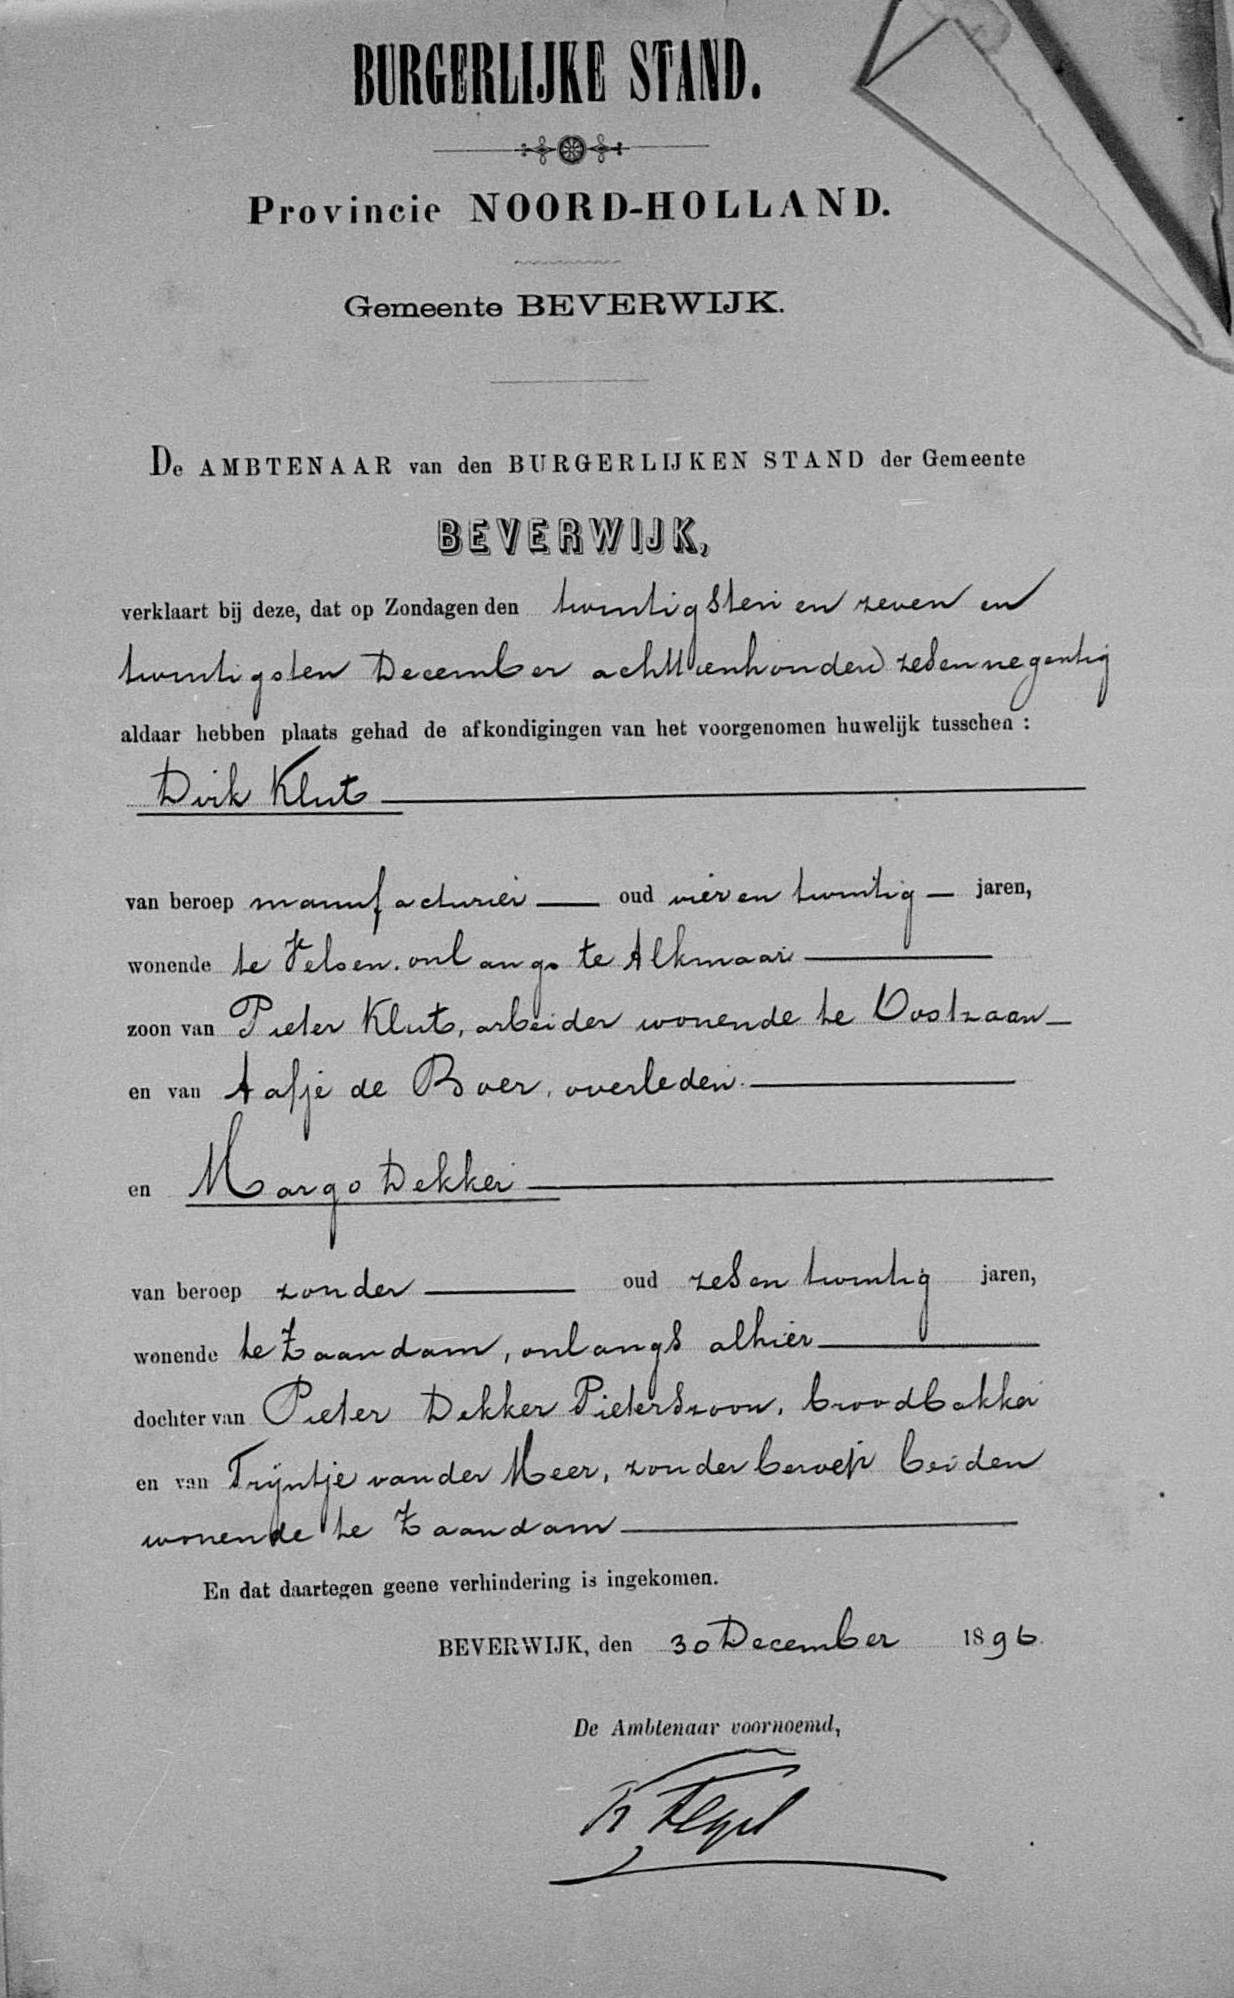 BURGERLIJKE STAND.
Provincie NOORD-HOLLAND.
Gemeente BEVERWIJK.
De AMBTENAAR van den BURGERLIJKEN STAND der Gemeente
BEVERWIJK,
verklaart bij deze, dat op Zondagen den twintigsten en zeven en
twintigsten December achttienhonderd zesennegentig
aldaar hebben plaats gehad de afkondigingen van het voorgenomen huwelijk tusschen :
Dirk Klut
van beroep manufacturier oud vier en twintig jaren,
wonende te Velsen. onlangs te Alkmaar
zoon van Pieter Klut, arbeider wonende te Oostzaan
en van Aafje de Boer, overleden.
en Margo Dekker
van beroep zonder oud zesen twintig jaren,
wonende te Zaandam, onlangs alhier
dochter van Pieter Dekker Pieterszoon, broodbakker
en van Trijntje van der Meer, zonder beroep beiden
wonende te Zaandam
En dat daartegen geene verhindering is ingekomen.
BEVERWIJK, den 30 December 1896.
De Ambtenaar voornoemd,